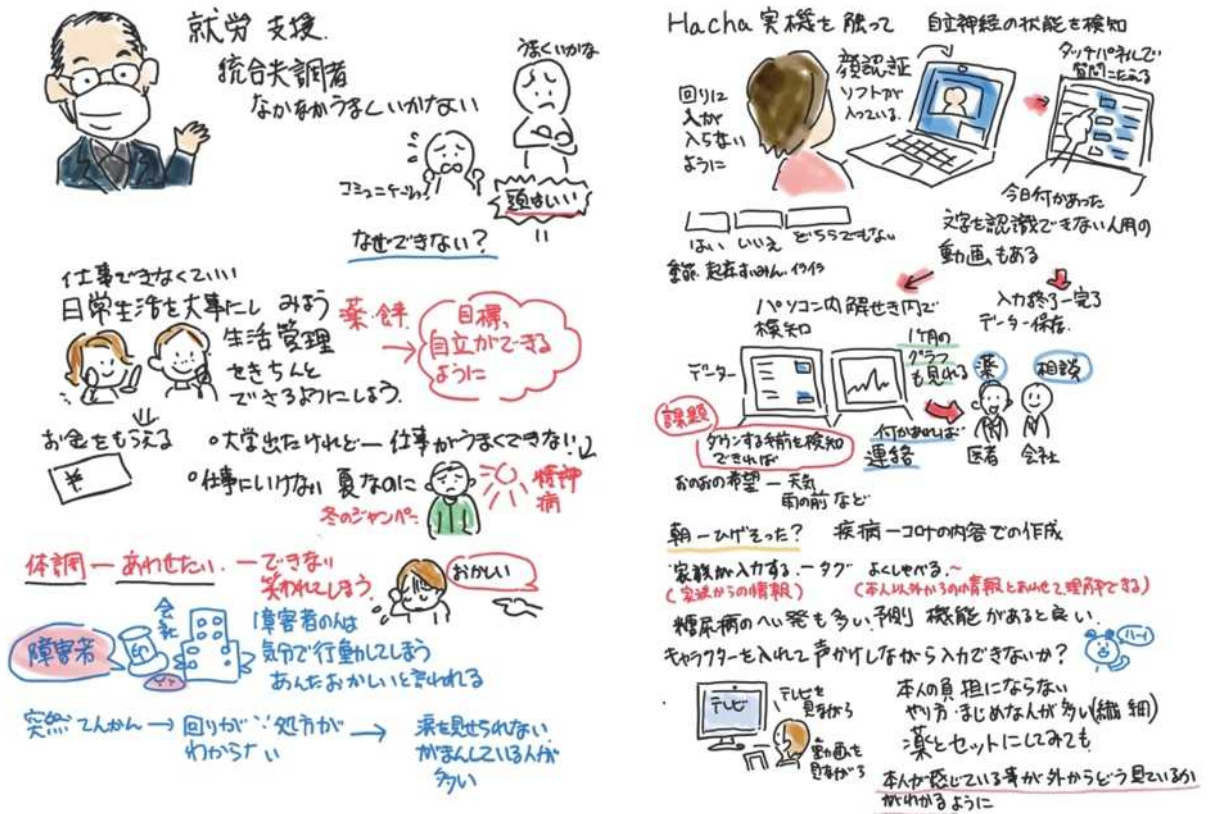 就労支援.
統合失調者
なかなかうまくいかない
うまくいかな
コミュニケーション
頭はいい
なぜできない?
仕事できなくていい
日常生活を大事にしみよう
生活管理
をきちんと
できるようにしよう.
薬・食事
目標、
自立ができる
ように
お金をもらえる
¥
○大学出たけれどー仕事がうまくできない.
○仕事にいけない 夏なのに
冬のジャンパー
精神
病
体調ーあわせたい.ーできない
笑われてしまう.
おかしい
障害者
印
会社
障害者の人は
気分で行動してしまう
あんたおかしいと言われる
突然てんかん→回りが 処方が
わからない
→涙を見せられない
がまんしている人が
多い
Hacha実機を触って
自立神経の状態を検知
回りに
人が
入らない
ように
顔認証
ソフトが
入っている.
タッチパネルで
質問にたえる
今日何かあった
文字を認識できない人用の
動画もある
はい いいえ どちらでもない
起床すいみん.イライラ
パソコン内解せき内で
検知
入力終了ー完了
データー保存.
データー
1ヶ月の
グラフ
も見れる
薬
相談
課題
ダウンする手前を検知
できれば
何かあれば
連絡
医者 会社
おのおの希望ー天気
雨の前など
朝ーひげそった?
疾病ーコロナの内容での作成
家族が入力する.ータグ よくしゃべる.~
(家族からの情報)
(本人以外からの情報とあわせて理解できる)
糖尿病のへい発も多い.予測機能があると良い.
キャラクターを入れて声かけしながら入力できないか?
ハーイ
テレビ
テレビを
見ながら
動画を
見ながら
本人の負担にならない
やり方・まじめな人が多い(繊細)
薬とセットにしてみても
本人が感じている事が外からどう見ているか
がわかるように